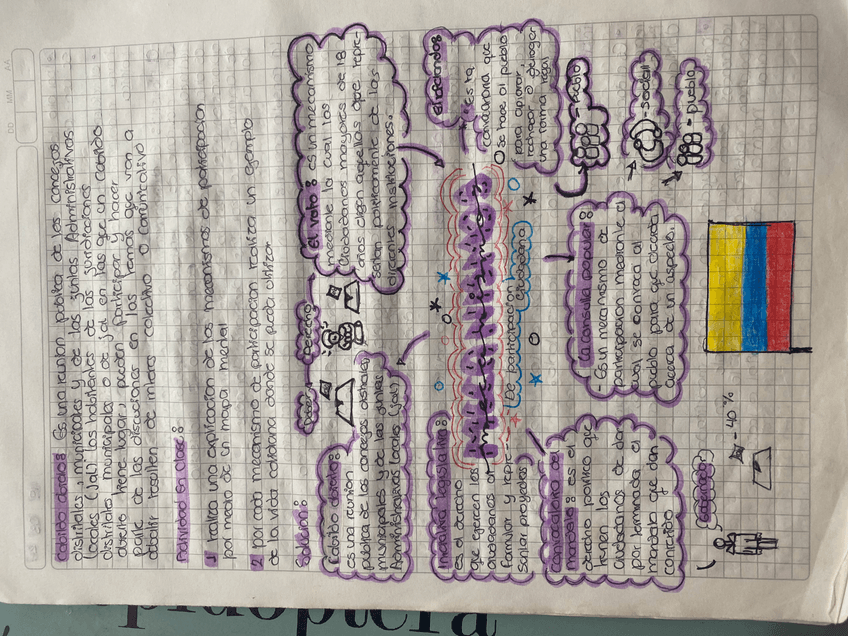 Cabildo abierto: Es una reunión pública de los concejos
distritales, municipales y de las juntas Administrativas
locales (Jal) los habitantes de las jurisdicciones
distritales, municipales o de jal en las que un cabildo
abierto tiene lugar, pueden participar y hacer
parte de las discusiones en los temas que van a
debatir resulten de interes colectivo o comunicativo
Actividad en clase:
1 realiza una explicación de los mecanismos de participación
por medio de un mapa mental
2 por cada mecanismo de participación realiza un ejemplo
de la vida cotidiana donde se pueda utilizar
Solución:
Deber
Derecho
Cabildo abierto:
es una reunión
pública de los consejos distritales,
municipales y de las juntas
Administrativas locales (jal)
El voto: es un mecanismo
mediante la cual los
Ciudadanos mayores de 18
años eligen aquellos que repre-
sentan políticamente de las
diferentes instituciones.
Iniciativa legislativa:
es el derecho
que ejercen los
ciudadanos en
formular y repre-
sentar proyectos
Mecanismos
De participación
Ciudadana
El referendo:
Es la
convocatoria que
se hace al pueblo
para aprobar,
rechazar o derogar
una norma legal
pueblo
social
pueblo
Revocatoria de
mandato: es el
derecho político que
tienen los
ciudadanos de dar
por terminada el
mandato que dan
conferido
La consulta popular:
- Es un mecanismo de
participación mediante el
cual se convoca al
pueblo para que decida
acerca de un aspecto.
Gobernador
- 40 %
DD
MM
AA
pidoptera